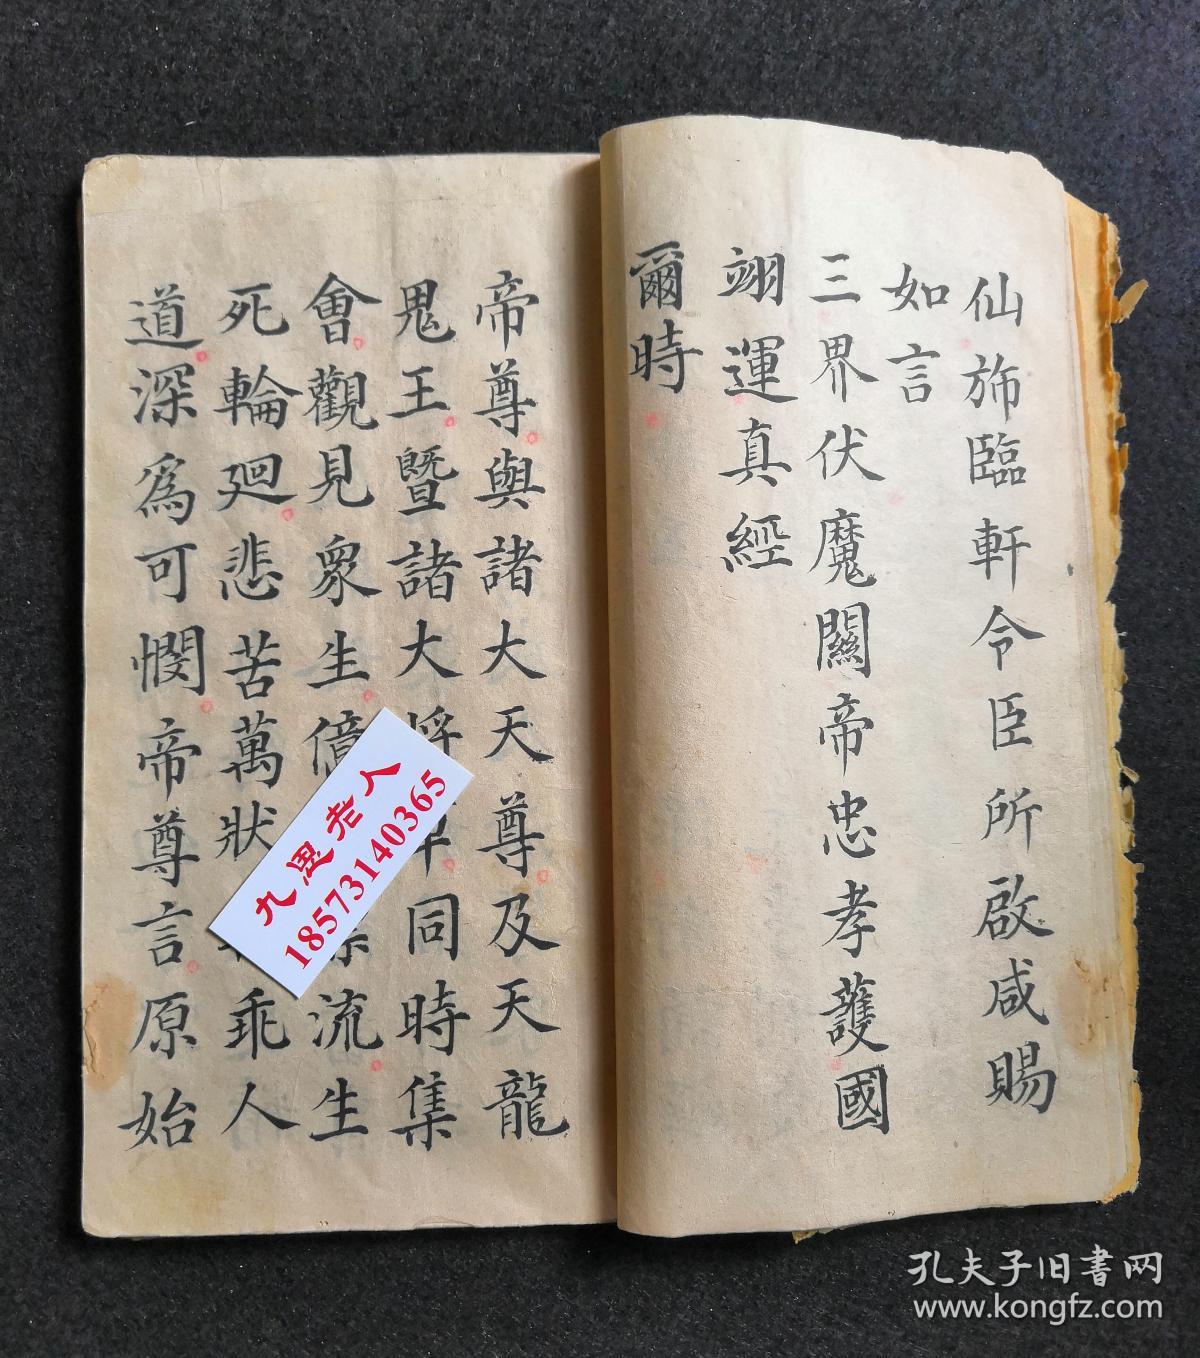 仙斾臨軒令臣所啟咸賜
如言
三界伏魔關帝忠孝護國
翊運真經
爾時
帝尊與諸大天尊及天龍
鬼王暨諸大將軍同時集
會觀見眾生億流生
死輪廻悲苦萬狀乖人
道深為可憫帝尊言原始
九思老人
18573140365
孔夫子旧書网
www.kongfz.com